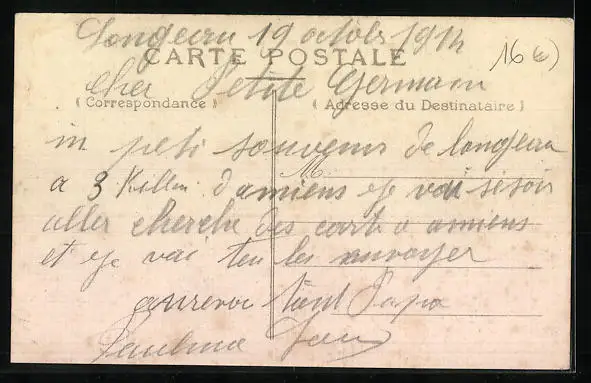 Longeau 19 octobr 1914
16 €)
CARTE POSTALE
Cher Petite Germain
(Correspondance)
(Adresse du Destinataire)
in peti souvenir de longeau
M.
a 3 Killm. d'amiens et je vai sesoir
aller cherche des cart a amiens
et je vai ten les anvoyer
aurevoi tont Papa